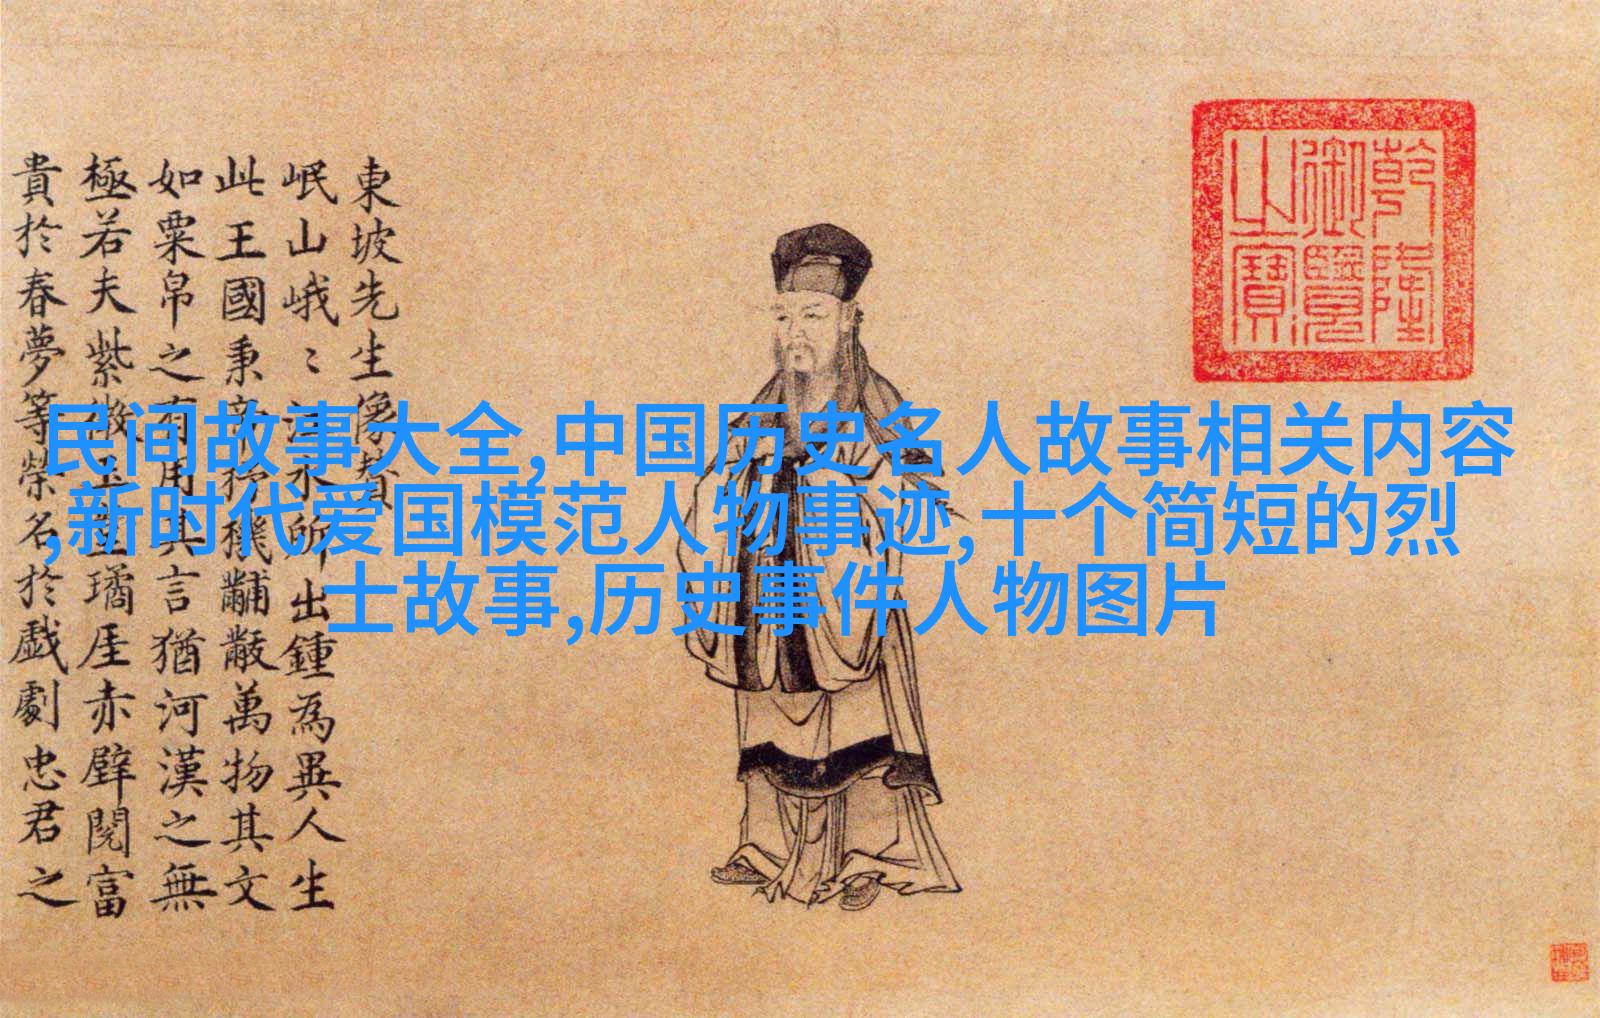 東坡先生像贊
岷山峨〻江水所出鍾為異人生
此王國秉帝杼機黼黻萬物其文
如粟帛之有用其言猶河漢之無
極若夫紫微玉堂璚厓赤壁閱富
貴於春夢等榮名於戲劇忠君之
乾隆
御覽
之寶
民间故事大全,中国历史名人故事相关内容
,新时代爱国模范人物事迹,十个简短的烈
士故事,历史事件人物图片